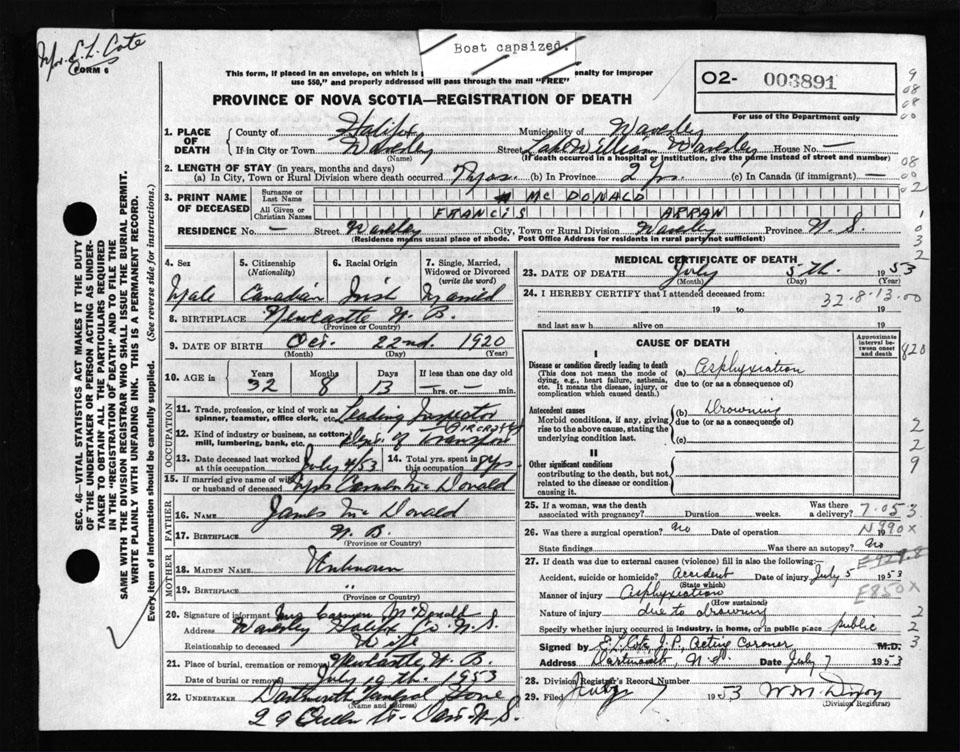 Mrs. E. L. Cote
FORM 6
Boat capsized.
This form, if placed in an envelope, on which is p enalty for improper
use $50," and properly addressed will pass through the mail "FREE"
PROVINCE OF NOVA SCOTIA—REGISTRATION OF DEATH
O2- 003891
For use of the Department only
1. PLACE OF DEATH
County of Halifax Municipality of Waverley
If in City or Town Waverley Street Lake William Waverley House No. —
(Name) (If death occurred in a hospital or institution, give the name instead of street and number)
2. LENGTH OF STAY (in years, months and days)
(a) In City, Town or Rural Division where death occurred (b) In Province (c) In Canada (if immigrant) —
3. PRINT NAME OF DECEASED
Surname or Last Name McDONALD
All Given or Christian Names FRANCIS ARRAN
RESIDENCE No. — Street Waverley City, Town or Rural Division Waverley Province N. S.
(Residence means usual place of abode. Post Office Address for residents in rural parts not sufficient)
4. Sex Male
5. Citizenship (Nationality) Canadian
6. Racial Origin Irish
7. Single, Married, Widowed or Divorced (write the word) Married
8. BIRTHPLACE Newcastle N. B.
(Province or Country)
9. DATE OF BIRTH Oct. 22nd. 1920
(Month) (Day) (Year)
10. AGE in Years 32 Months 8 Days 13 If less than one day — hrs. or — min.
OCCUPATION
11. Trade, profession, or kind of work as spinner, teamster, office clerk, etc. Leading Inspector
12. Kind of industry or business, as cotton mill, lumbering, bank, etc. AIRCRAFT Dept. of Transport
13. Date deceased last worked at this occupation July 4/53
14. Total yrs. spent in this occupation 8 yrs
15. If married give name of wife or husband of deceased Mrs Carmen McDonald
FATHER
16. NAME James McDonald
17. BIRTHPLACE N. B.
(Province or Country)
MOTHER
18. MAIDEN NAME Unknown
19. BIRTHPLACE "
(Province or Country)
20. Signature of informant Mrs Carmen McDonald
Address Waverley Halifax Co. N. S.
Relationship to deceased Wife
21. Place of burial, cremation or removal Newcastle N. B.
Date of burial or removal 1953
22. UNDERTAKER Dartmouth Funeral Home
(Name and address)
29 Queen St. Dart N. S.
MEDICAL CERTIFICATE OF DEATH
23. DATE OF DEATH July 5th. 1953
(Month) (Day) (Year)
24. I HEREBY CERTIFY that I attended deceased from:
32.8.13.00
19 to 19
and last saw h alive on 19
CAUSE OF DEATH
Approximate interval between onset and death
I
Disease or condition directly leading to death (a) Asphyxiation
(This does not mean the mode of dying, e.g., heart failure, asthenia, etc. It means the disease, injury, or complication which caused death.)
due to (or as a consequence of)
Antecedent causes (b) Drowning
Morbid conditions, if any, giving rise to the above cause, stating the underlying condition last.
due to (or as a consequence of)
(c)
II
Other significant conditions
contributing to the death, but not related to the disease or condition causing it.
25. If a woman, was the death associated with pregnancy? Duration weeks. Was there a delivery?
7.053
26. Was there a surgical operation? no Date of operation
N990X
State findings Was there an autopsy? no
27. If death was due to external causes (violence) fill in also the following:—
Accident, suicide or homicide? Accident Date of injury July 5 1953
(State which)
E850X
Manner of injury Asphyxiation
(How sustained)
Nature of injury due to drowning
Specify whether injury occurred in industry, in home, or in public place public
Signed by E. L. Cote, J. P. Acting Coroner M.D.
Address Dartmouth, N. S. Date July 7 1953
28. Division Registrar's Record Number
29. Filed 7 1953 W. M. Dixon
(Division Registrar)
SEC. 46—VITAL STATISTICS ACT MAKES IT THE DUTY
OF THE UNDERTAKER OR PERSON ACTING AS UNDER-
TAKER TO OBTAIN ALL THE PARTICULARS REQUIRED
IN THE "REGISTRATION OF DEATH" AND TO FILE THE
SAME WITH THE DIVISION REGISTRAR WHO SHALL ISSUE THE BURIAL PERMIT.
WRITE PLAINLY WITH UNFADING INK. THIS IS A PERMANENT RECORD.
Every item of information should be carefully supplied. (See reverse side for instructions.)